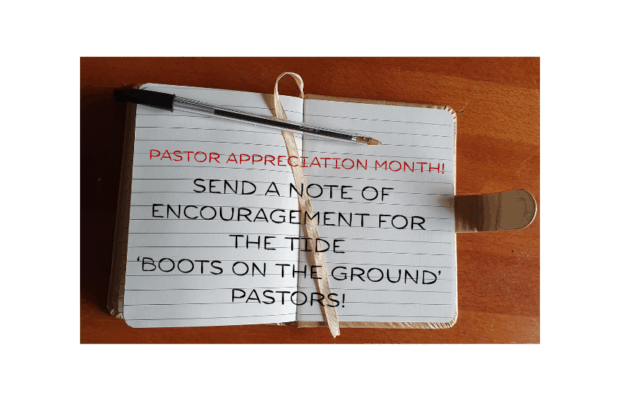 PASTOR APPRECIATION MONTH!
SEND A NOTE OF
ENCOURAGEMENT FOR
THE TIDE
'BOOTS ON THE GROUND'
PASTORS!